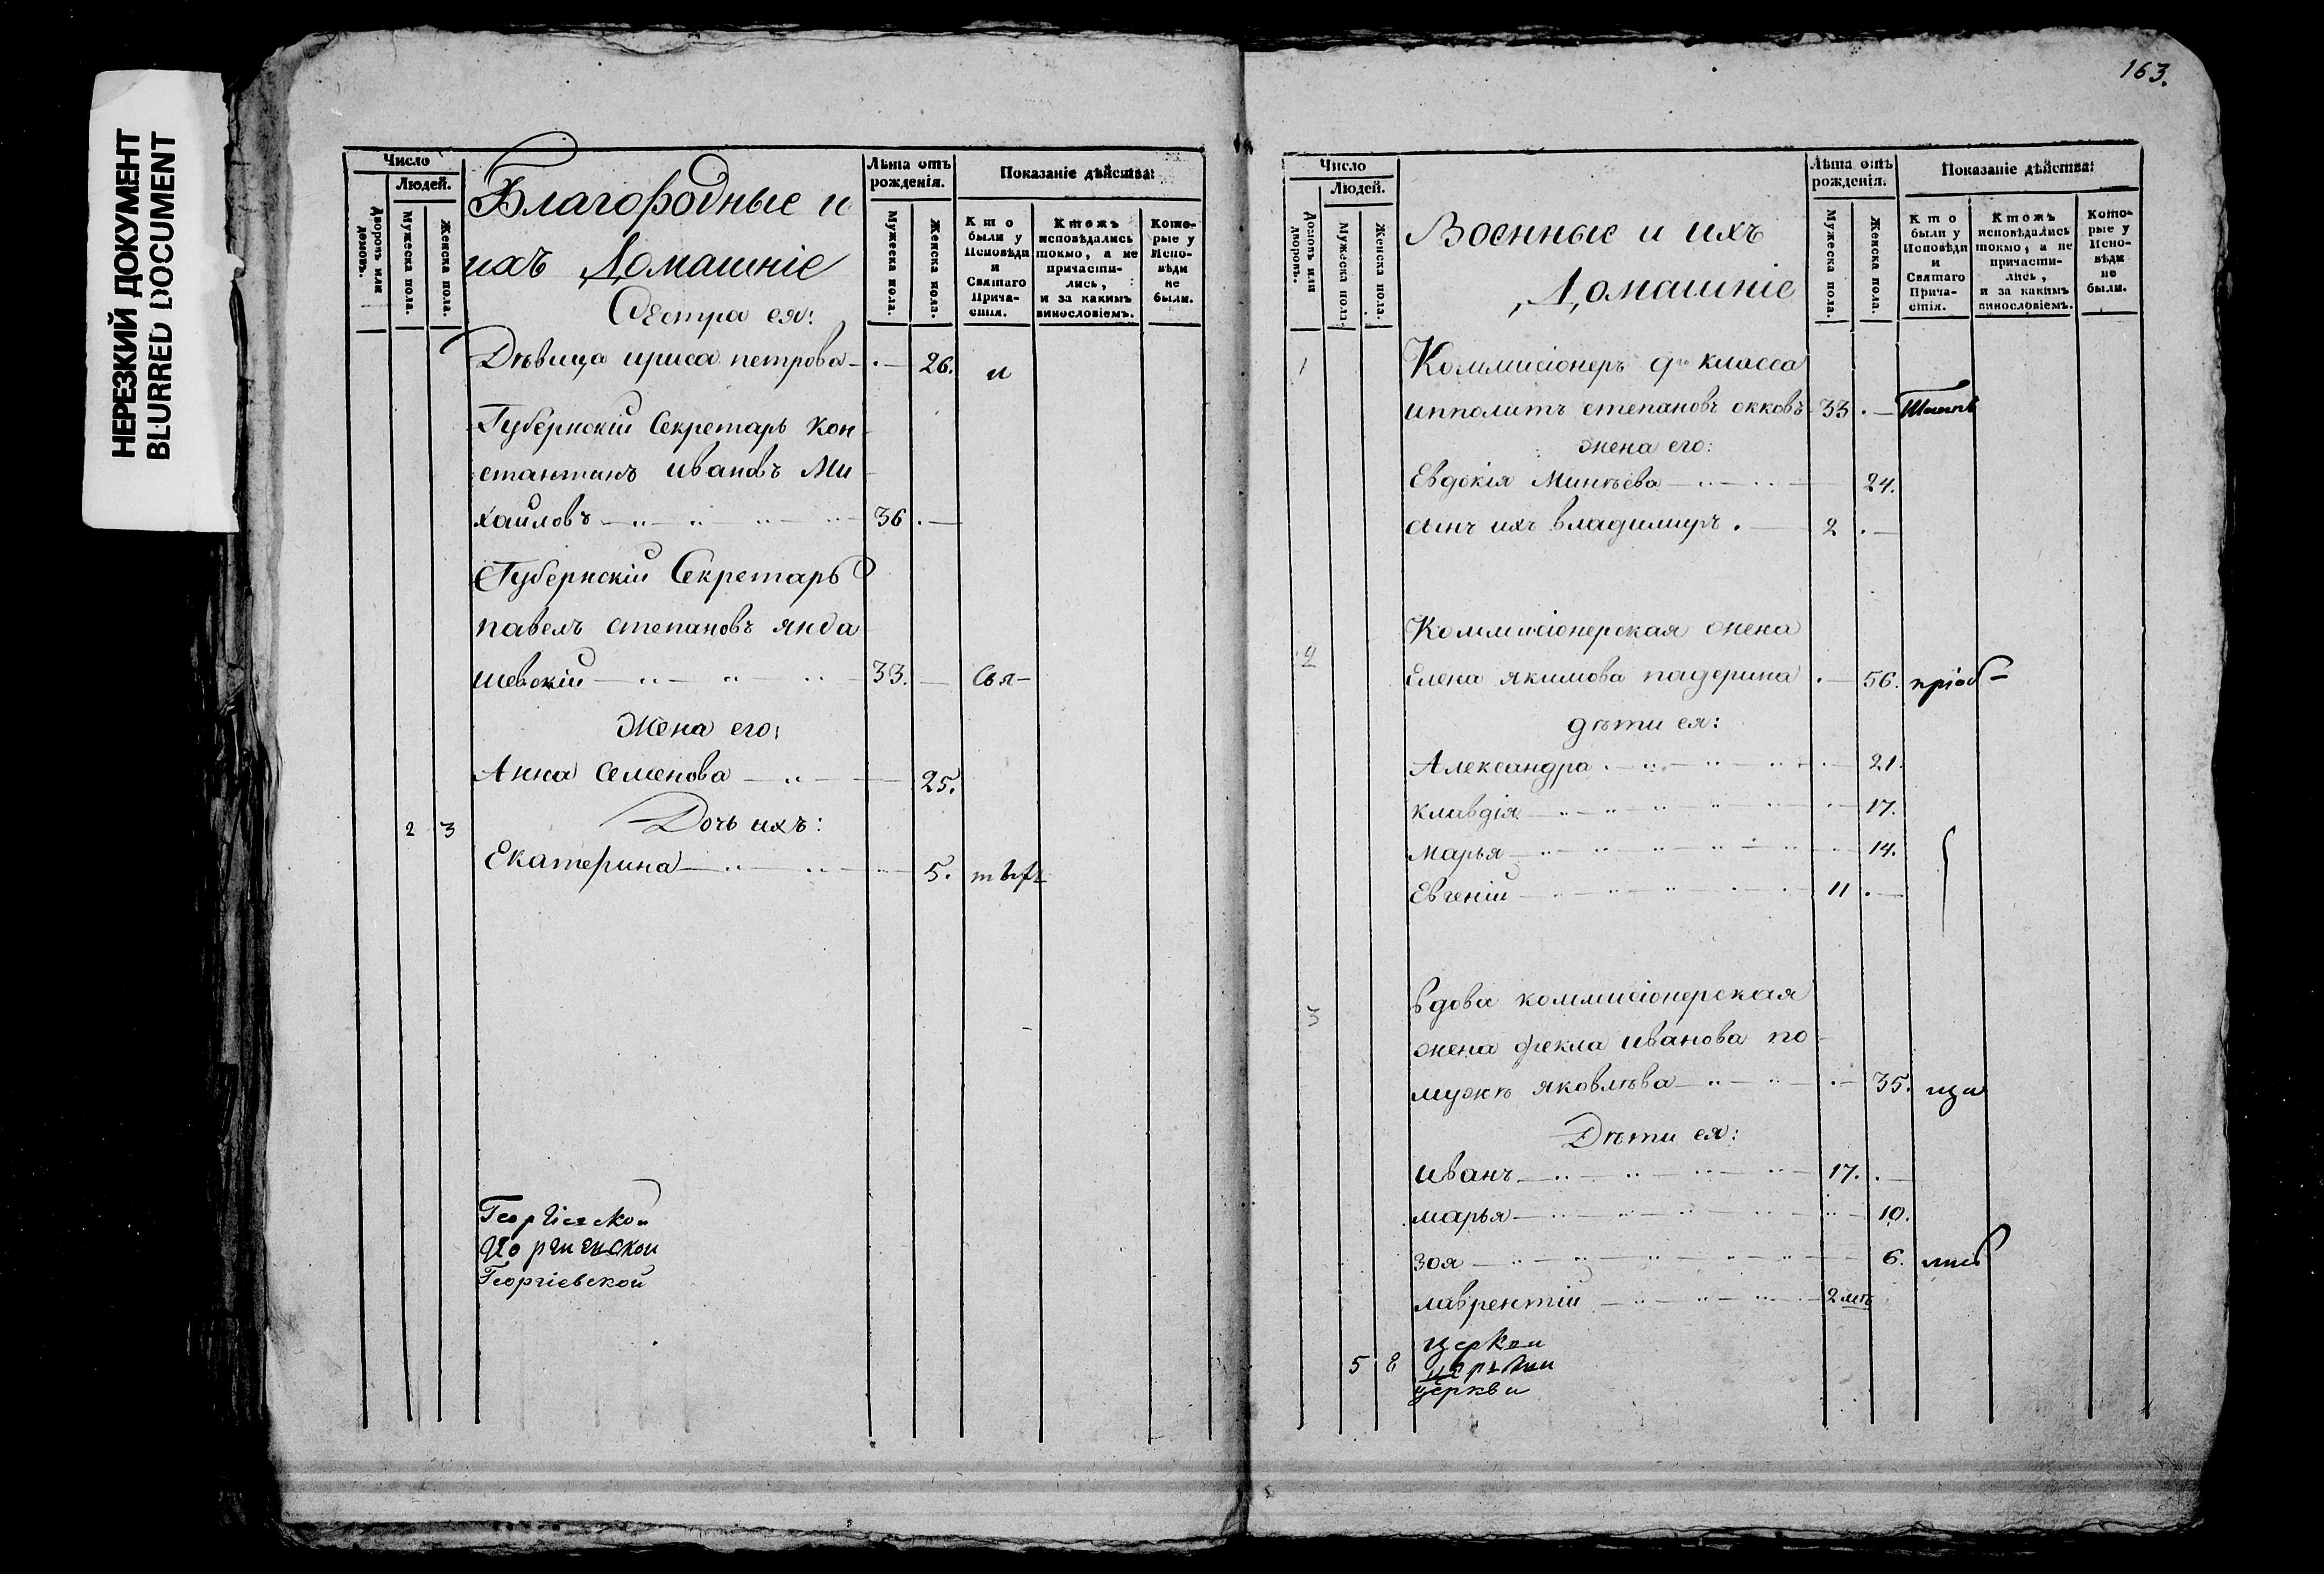 НЕРЕЗКИЙ ДОКУМЕНТ
BLURRED DOCUMENT
Число
Людей.
Дворовъ или домовъ.
Мужеска пола.
Женска пола.
Благородные и
ихъ Домашніе
Лѣта отъ рожденія.
Мужеска пола.
Женска пола.
Показаніе дѣйства:
Кто были у Исповѣди и Святаго Причастія.
Ктожъ исповѣдались токмо, а не причастились, и за какимъ винословіемъ.
Которые у Исповѣди не были.
Сестра ея:
Дѣвица ириса петрова — 26. и
Губернскій Секретарь Кон
стантинъ ивановъ Ми
хайловъ — 36. —
Губернскій Секретарь
павелъ степановъ янда
шевскій — 33. — Свя-
Жена его:
Анна Семенова — 25.
2 3 Дочь ихъ:
Екатерина — 5.
Георгіевской
Георгіевской
163.
Число
Людей.
Домовъ или дворовъ.
Мужеска пола.
Женска пола.
Военные и ихъ
Домашніе
Лѣта отъ рожденія.
Мужеска пола.
Женска пола.
Показаніе дѣйства:
Кто были у Исповѣди и Святаго Причастія.
Ктожъ исповѣдались токмо, а не причастились, и за какимъ винословіемъ.
Которые у Исповѣди не были.
1 Коммисіонеръ 9го класса
ипполитъ степановъ окковъ 33. —
жена его:
Евдокія Минѣева — 24.
сынъ ихъ владимиръ. — 2. —
2 Коммисіонерская жена
Елена якимова падерина — 56. пріоб-
дѣти ея:
Александра — 21.
клавдія — 17.
марья — 14.
Евгеній — 11. —
3 вдова коммисіонерская
жена фекла иванова по
мужѣ яковлѣва — 35. щи
Дѣти ея:
иванъ — 17. —
марья — 10.
зоя — 6. лись
лаврентій — 2
церкви
5 8
церкви